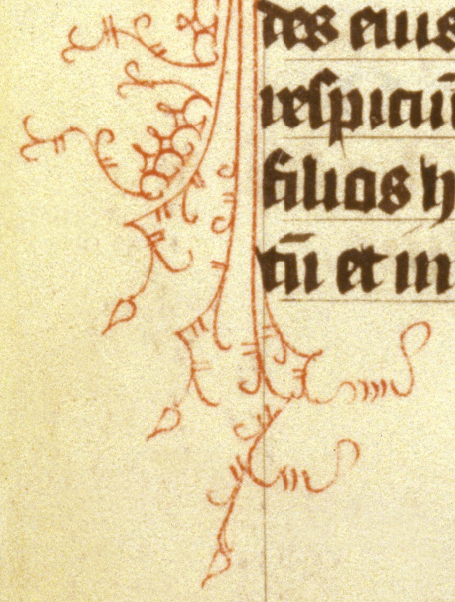 des eius
respiciū
filios h
tū et in